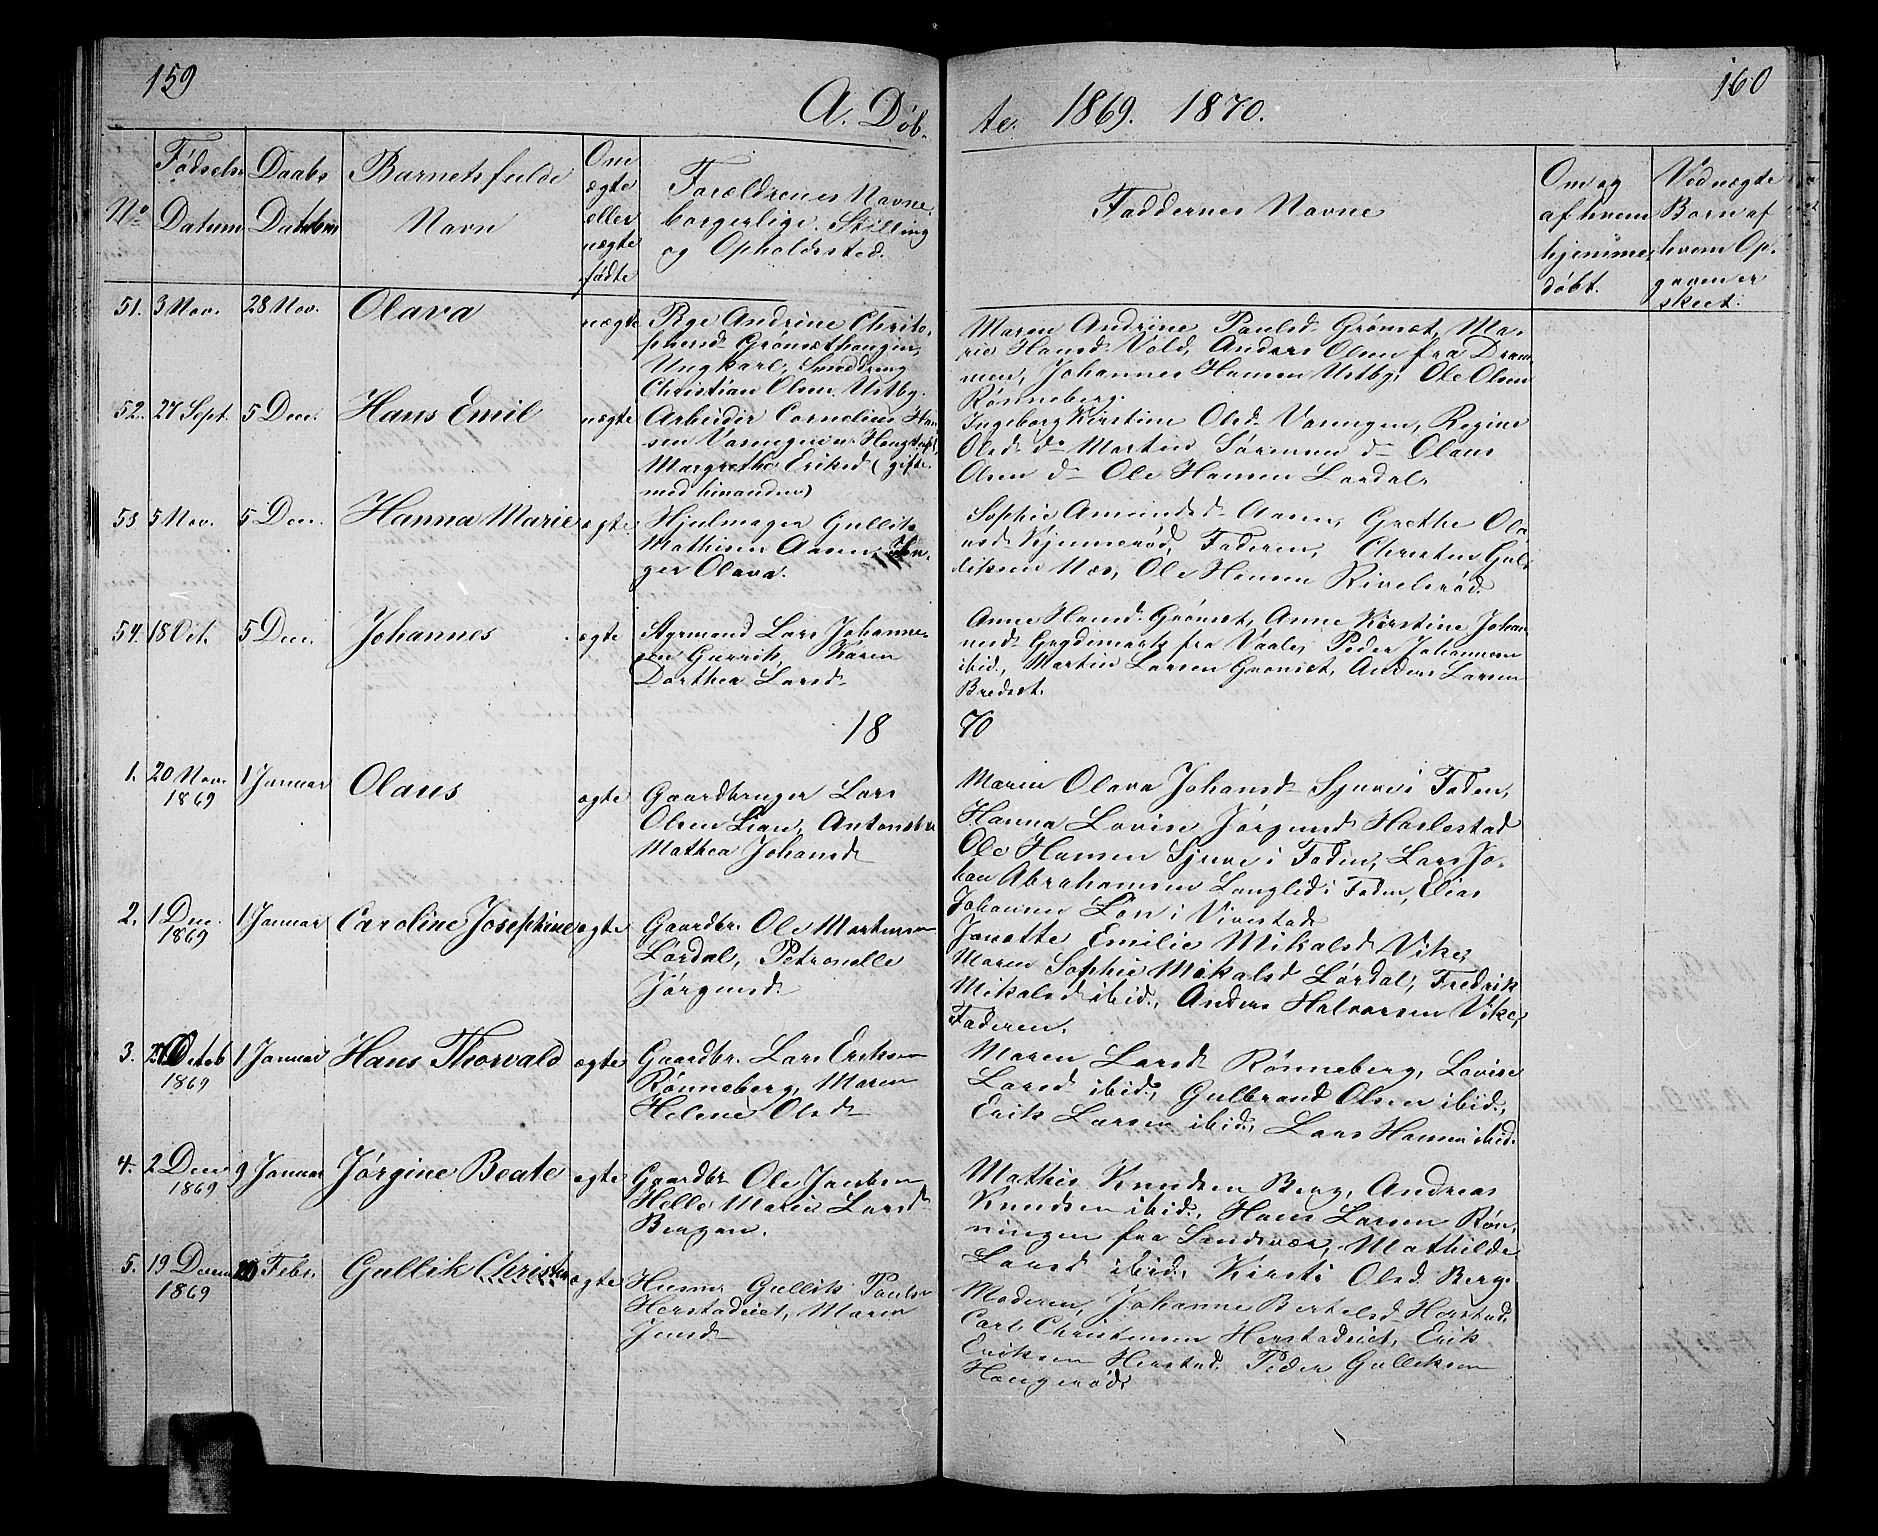 159
A. Døb-
Fødsels
Daabs
Barnets fulde
Om
ægte
eller
uægte
fødte
Forældrenes Navne,
No
Datum
Datum
Navn
borgerlige Stilling
og Opholdssted.
51. 3 Nov. 28 Nov. Olava uægte Pige Andrine Christo-
phersd. Grønsethaugen,
Ungkarl, Smeddreng
Christian Olsen Ustby.
52. 27 Sept. 5 Dec. Hans Emil uægte Arbeider Cornelius Han
sen
Margrethe Eriksd. (gifte
med hinanden)
53 5 Nov. 5 Dec. Hanna Marie ægte Hjulmager Gullik
Mathisen Aasen, In-
ger Olava.
54. 18 Oct. 5 Dec. Johannes ægte Styrmand Lars Johanne-
sen Karen
Dorthea Larsd.
18
1. 20 Nov. 1869 1 Januar Olaus ægte Gaardbruger Lars
Olsen Lian, Antonette
Mathea Johansd.
2. 1 Dec. 1869 1 Januar Caroline Josephine ægte Gaardbr. Ole Mortensen
Lørdal, Petronelle
Jørgensd.
3. Octob 1869 1 Januar Hans Thorvald ægte Gaardbr. Lars Eriksen
Rønneberg, Maren
Helene Olsd.
4. 2 Dec 1869 9 Januar Jørgine Beate ægte Gaardbr. Ole Jacobsen
Helle Marie Larsd.
Bergan.
5. 19 Decem 1869 20 Febr. Gullik Christen ægte Husm. Gullik Pauls.
Herstadeiet, Maren
Jensd.
160
te. 1869. 1870.
Faddernes Navne
Om og
af hvem
hjemme-
døbt.
Ved uægte
Børn af
hvem Op-
gaven er
skeet.
Maren Andrine Paulsd. Grønset, Ma-
rie Hansd. Vold, Anders Olsen fra Dram-
men, Johannes Hansen Ustby, Ole Olsen
Rønneberg.
Ingeborg Kirstine Olsd. Regine
Olsd. do Martin Sørensen do Olaus
Olsen do Ole Hansen Lørdal,
Sophie Amundsd. Aasen, Grethe Ola
vsd. Faderen, Christen Gul-
liksen Næs, Ole Hansen
Anne Hansd. Grønset, Anne Kirstine Johan
nesd. fra Vaale, Peder Johannesen
ibid., Martin Larsen Grønset, Anders Larsen
Bredset.
70
Maren Olava Johansd. Sjue i Foden,
Hanna Lovise Jørgensd. Harlestad
Ole Hansen Sjue i Foden, Lars Jo-
han Abrahamsen Langlid i Foden, Elias
Johannes Løn i Vivestad
Janette Emilie Mikalsd. Vike,
Maren Sophie Mikalsd. Lørdal, Fredrik
Mikalsd. ibid., Anders Halvorsen Vike,
Faderen.
Maren Larsd. Rønneberg, Lovise
Larsd. ibid., Gulbrand Olsen ibid.,
Erik Larsen ibid., Lars Hansen ibid.
Mathis Knudsen Berg, Andreas
Knudsen ibid., Hans Larsen Røn-
ningen fra Sandsvær, Mathilde
Larsd. ibid., Kirsti Olsd. Berg.
Moderen, Johanne Bertelsd. Herstad,
Carl Christensen Herstadeiet, Erik
Eriksen Herstad, Peder Gulliksen
Haugerød.